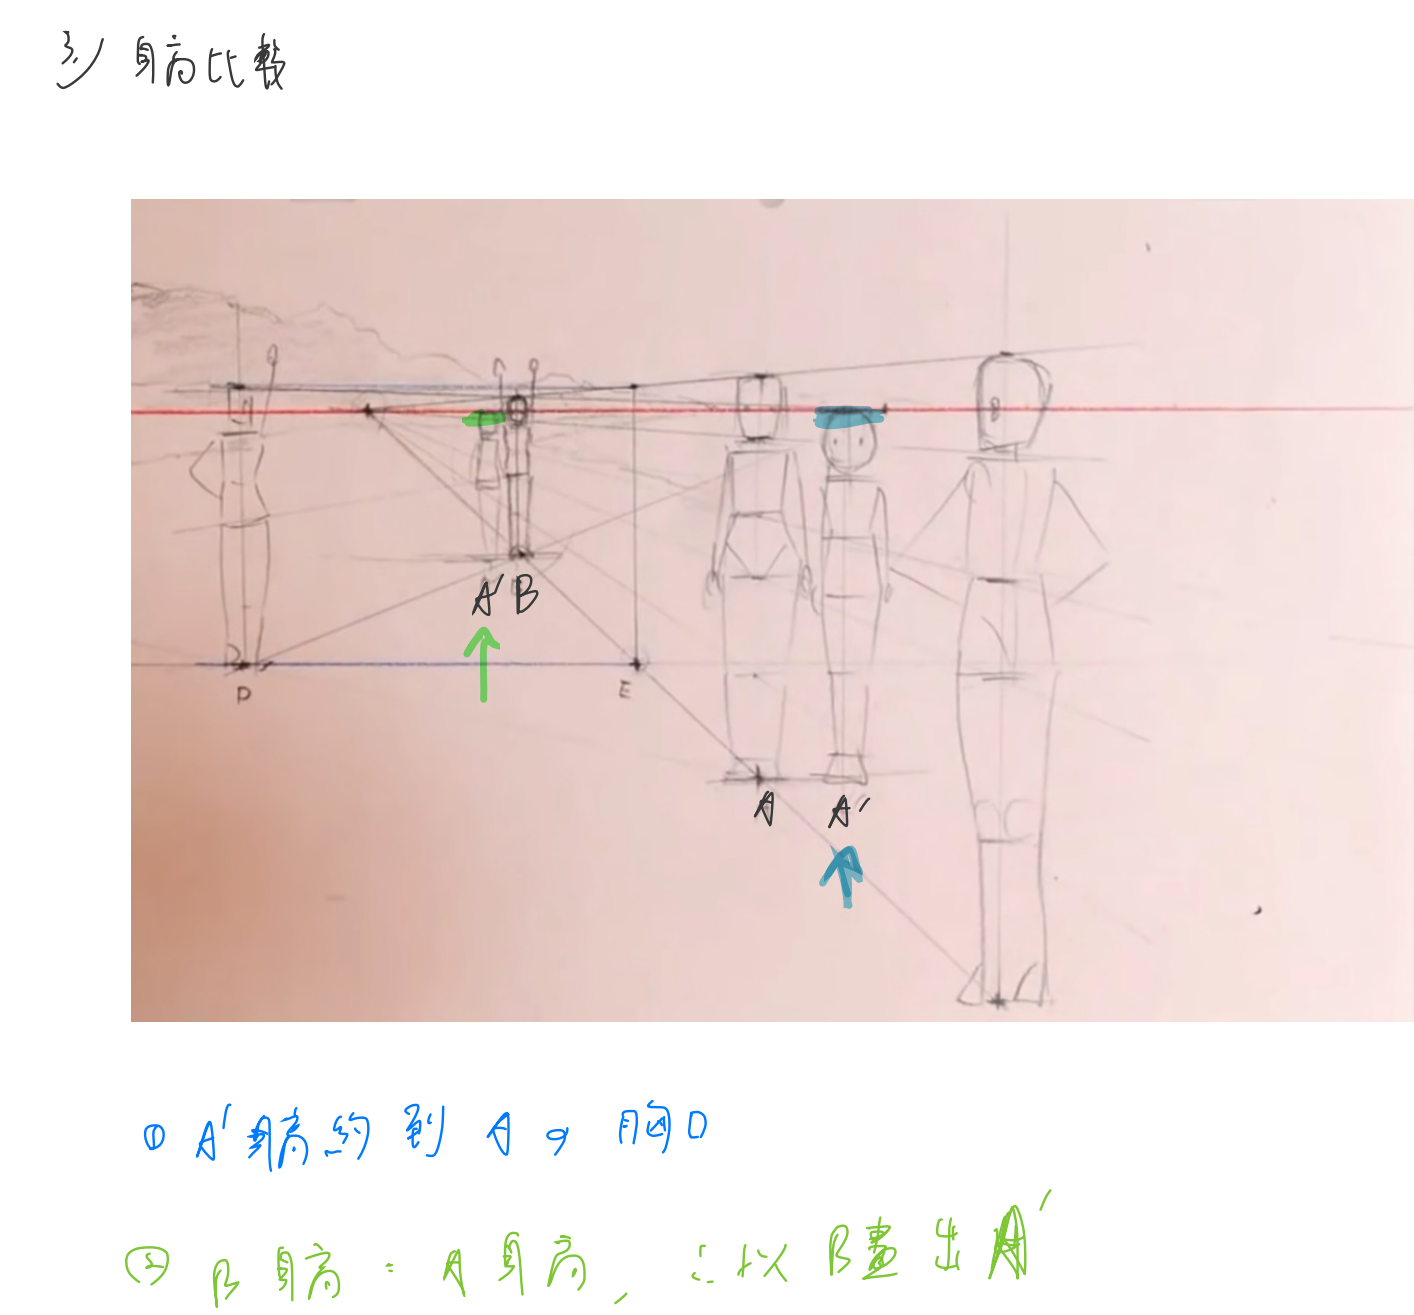 3) 身高比較
A' B
D
E
A A'
① A' 身高約到 A の 胸口
② B 身高 = A 身高, ∴以 B畫出 A'